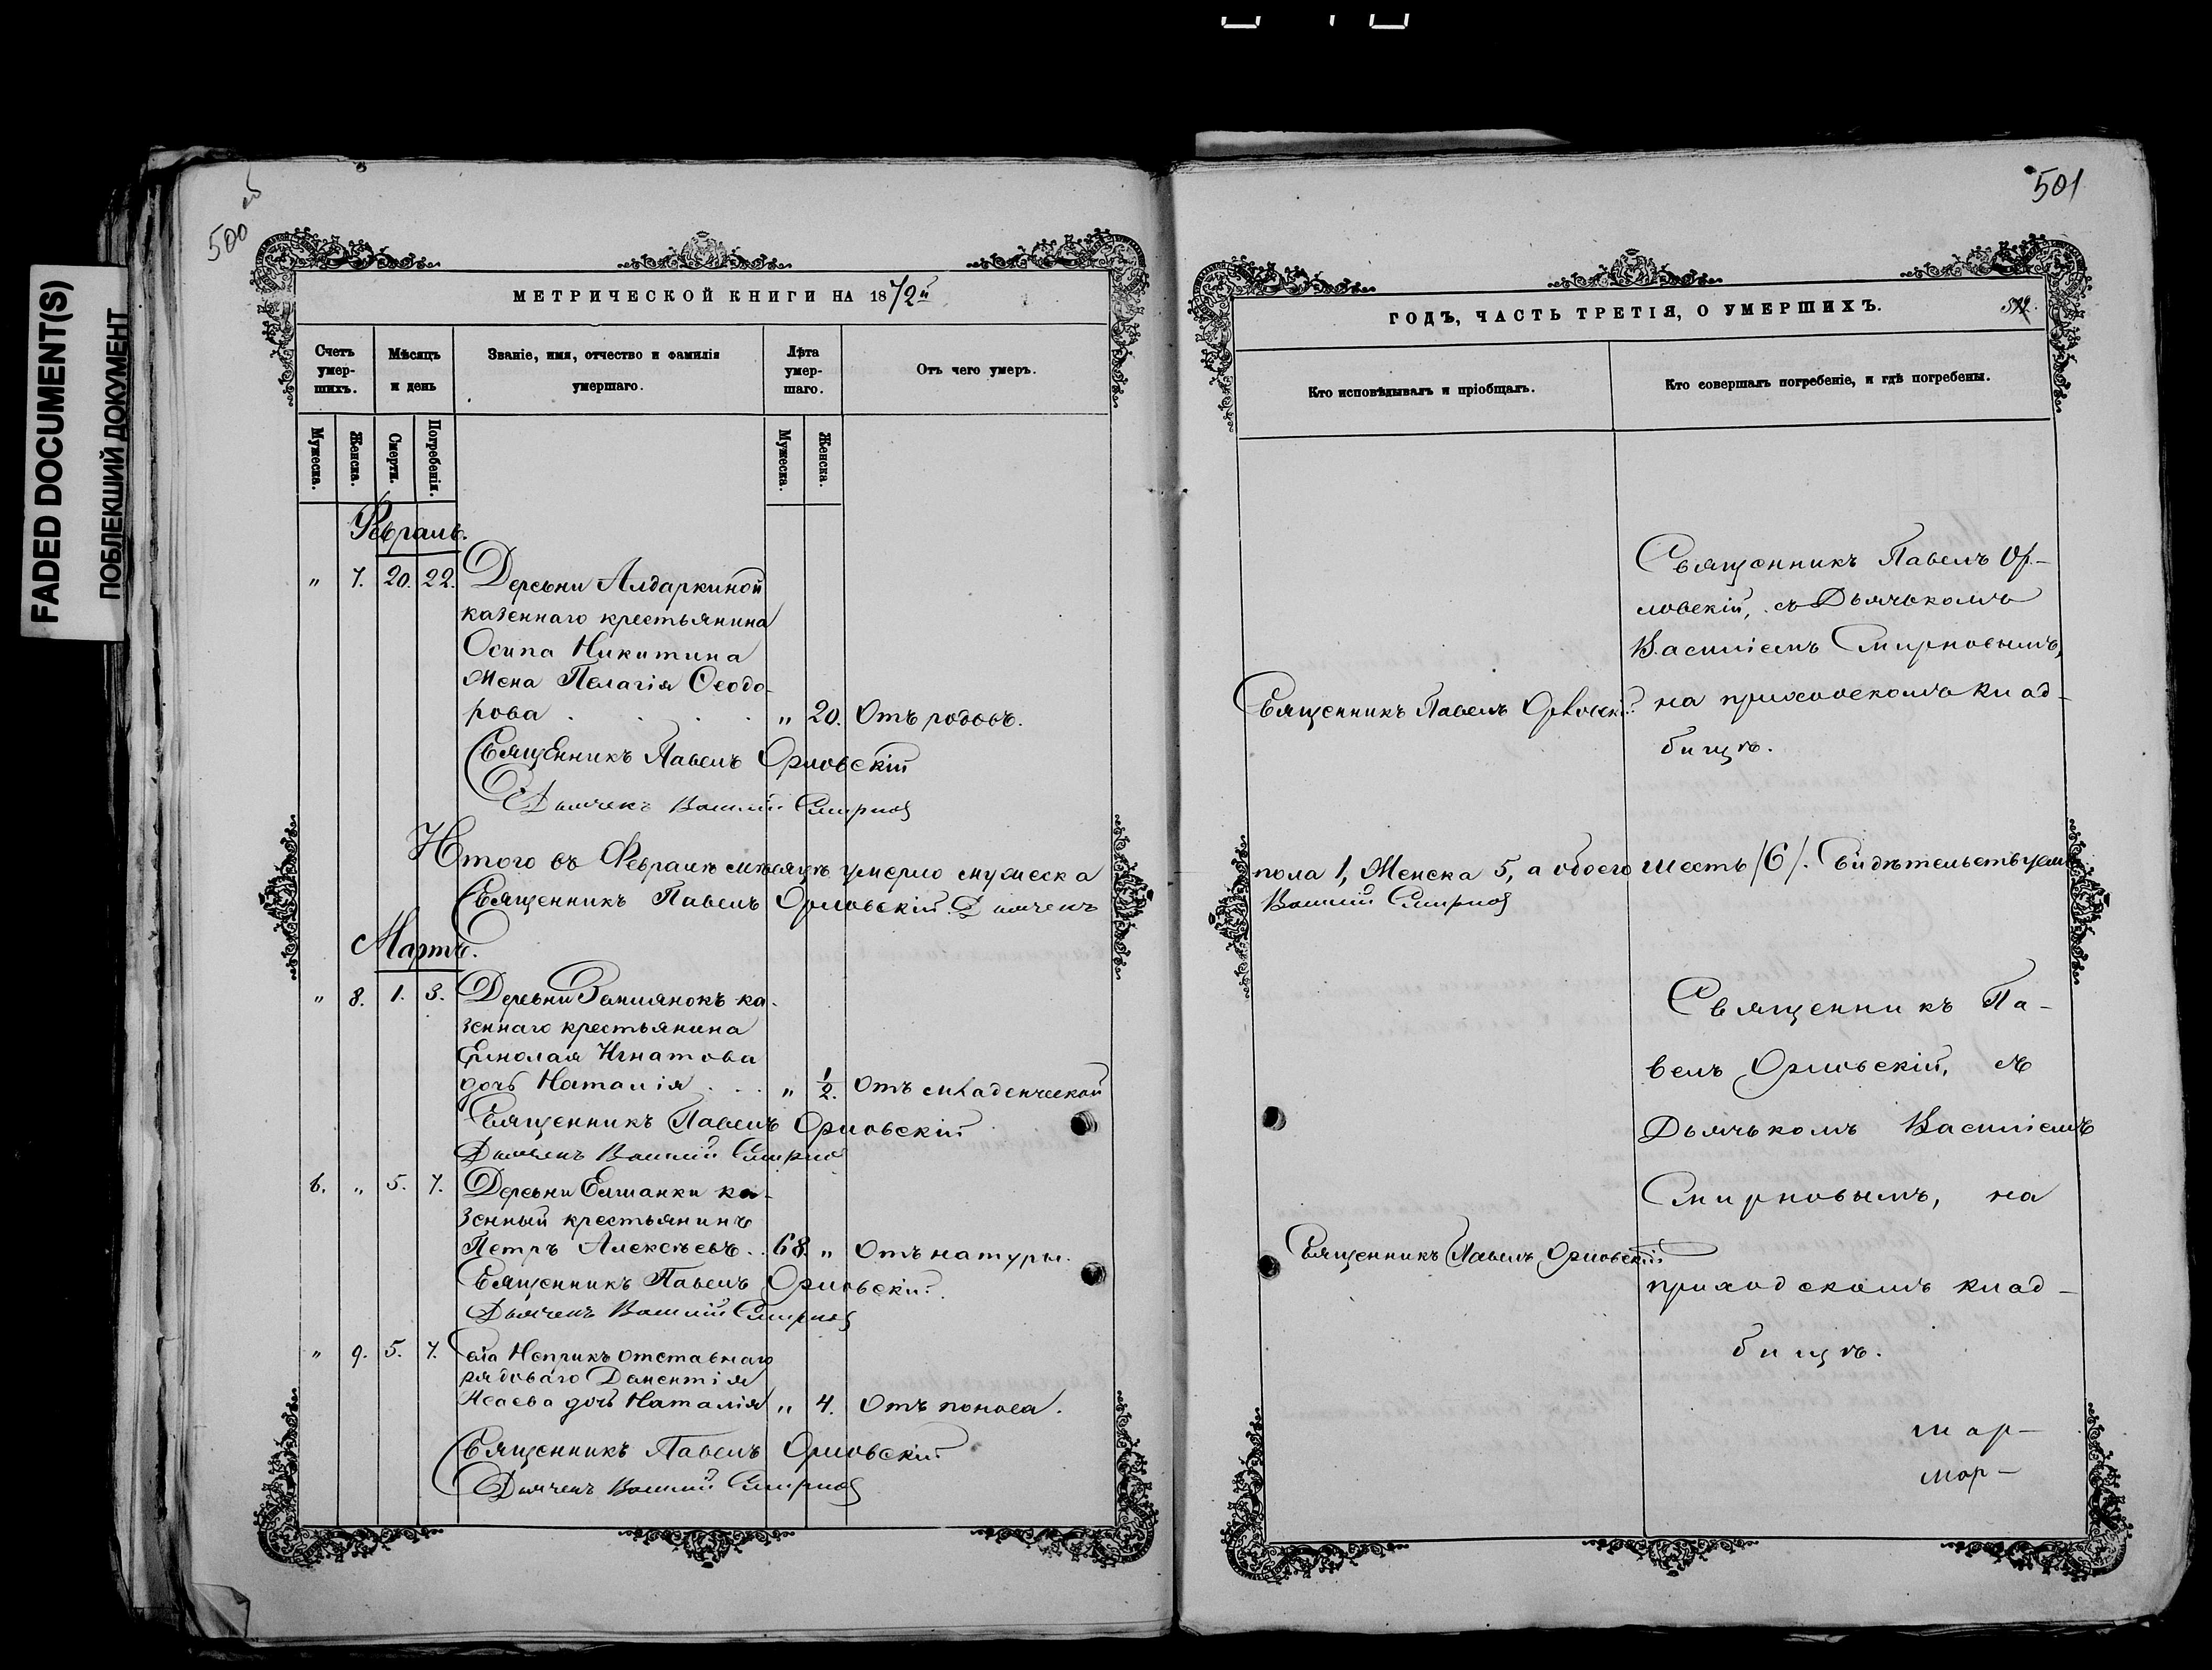 FADED DOCUMENT(S)
ПОБЛЕКЩИЙ ДОКУМЕНТ
500 об
МЕТРИЧЕСКОЙ КНИГИ НА 1872й
Счетъ умер-шихъ.
Мѣсяцъ и день
Званіе, имя, отчество и фамилія умершаго.
Лѣта умер-шаго.
Отъ чего умеръ.
Мужеска.
Женска.
Смерти.
Погребенія.
Мужеска.
Женска.
Февраль.
" 7. 20. 22. Деревни Алдаркиной
казеннаго крестьянина
Осипа Никитина
жена Пелагія Ѳеодо-
рова . . . . " 20. Отъ родовъ.
Священникъ Павелъ Орловскій
Дьячекъ Василій Смирновъ
Итого въ Февралѣ мѣсяцѣ умерло мужеска
Священникъ Павелъ Орловскій. Дьячекъ
Мартъ.
" 8. 1. 3. Деревни ка-
зеннаго крестьянина
Ермолая Игнатова
дочь Наталія . . . " 1/2. Отъ младенческой
Священникъ Павелъ Орловскій
Дьячекъ Василій Смирновъ
6. " 5. 7. Деревни Елшанки ка-
зенный крестьянинъ
Петръ Алексѣевъ . . 68. " Отъ натуры.
Священникъ Павелъ Орловскій.
Дьячекъ Василій Смирновъ
" 9. 5. 7. отставнаго
рядоваго
Исаева дочь Наталія " 4. Отъ поноса.
Священникъ Павелъ Орловскій
Дьячекъ Василій Смирновъ
501
ГОДЪ, ЧАСТЬ ТРЕТІЯ, О УМЕРШИХЪ.
Кто исповѣдывалъ и пріобщалъ.
Кто совершалъ погребеніе, и гдѣ погребены.
Священникъ Павелъ Ор-
ловскій, съ Дьячькомъ
Василіемъ Смирновымъ,
Священникъ Павелъ Орловскій
на приходскомъ клад-
бищѣ.
пола 1, Женска 5, а обоего шесть /6/. Свидѣтельствуемъ
Василій Смирновъ
Священникъ Па-
велъ Орловскій, съ
Дьячькомъ Василіемъ
Смирновымъ, на
Священникъ Павелъ Орловскій
приходскомъ клад-
бищѣ.
мар-
мар-